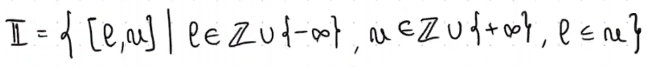 𝕀 = { [ℓ,u] | ℓ ∈ ℤ ∪ {-∞}, u ∈ ℤ ∪ {+∞}, ℓ ≤ u }